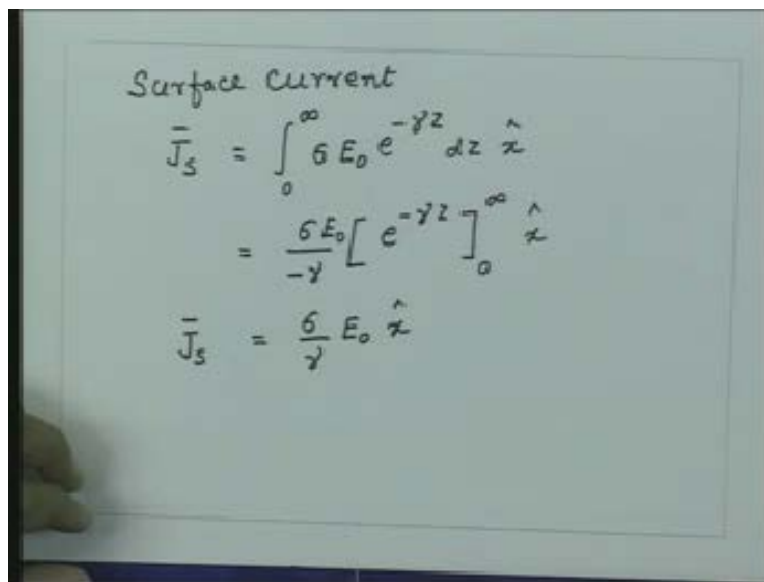 Surface Current
J̄s = ∫₀^∞ σ E₀ e^(-γz) dz x̂
= σE₀/-γ [ e^(-γz) ]₀^∞ x̂
J̄s = σ/γ E₀ x̂